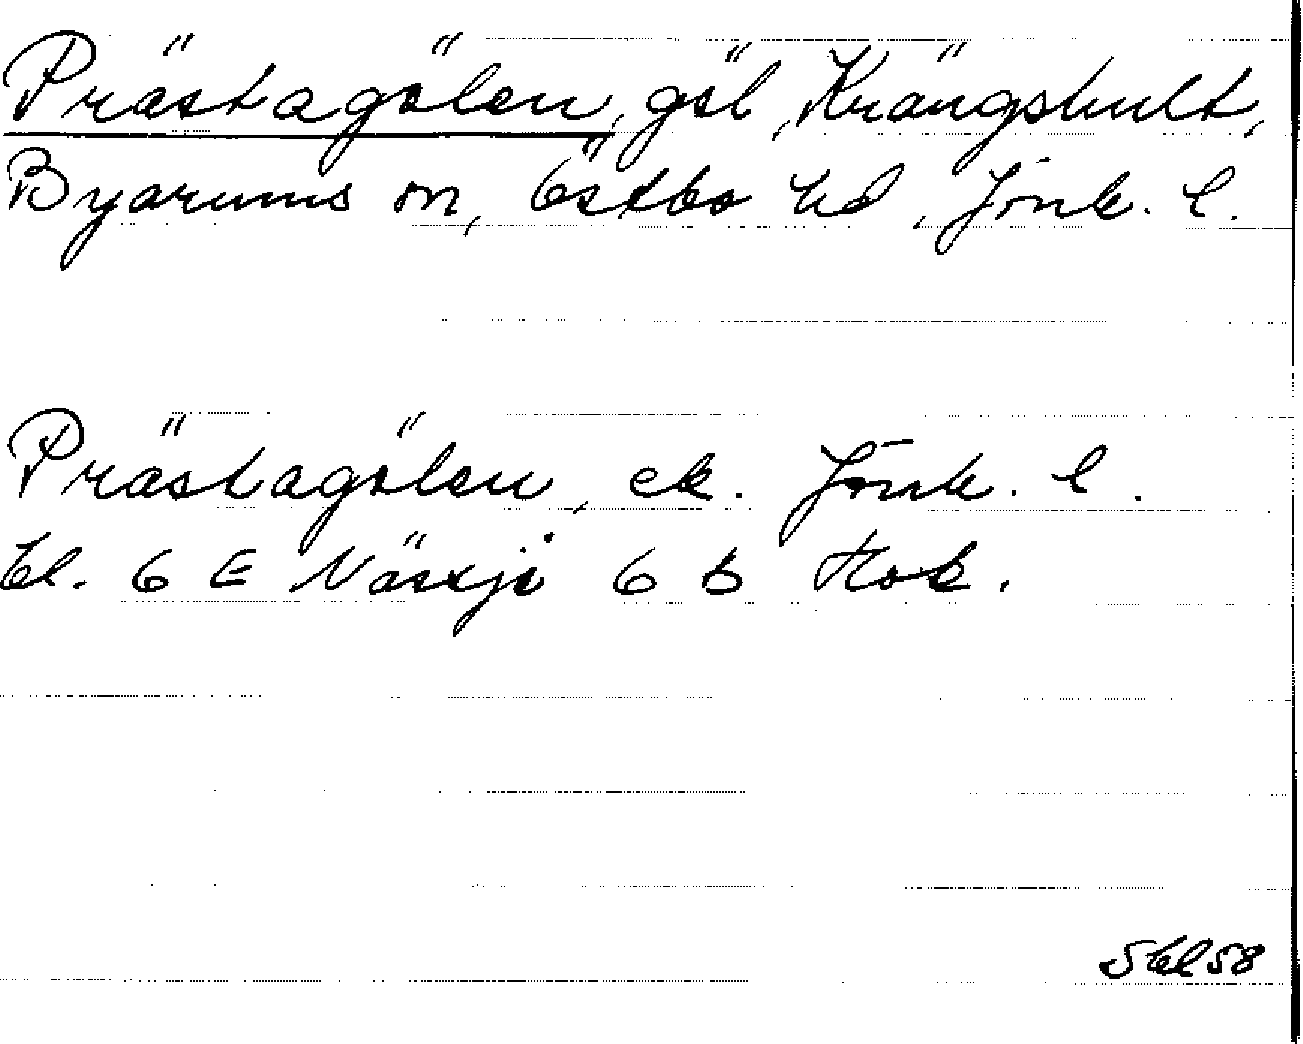 Prästagölen, göl, Krängshult,
Byarums sn, Östbo hd, Jönk. l.
Prästagölen, ek. Jönk. l.
bl. 6 E Nässjö 6 b Hok.
Sbl 58